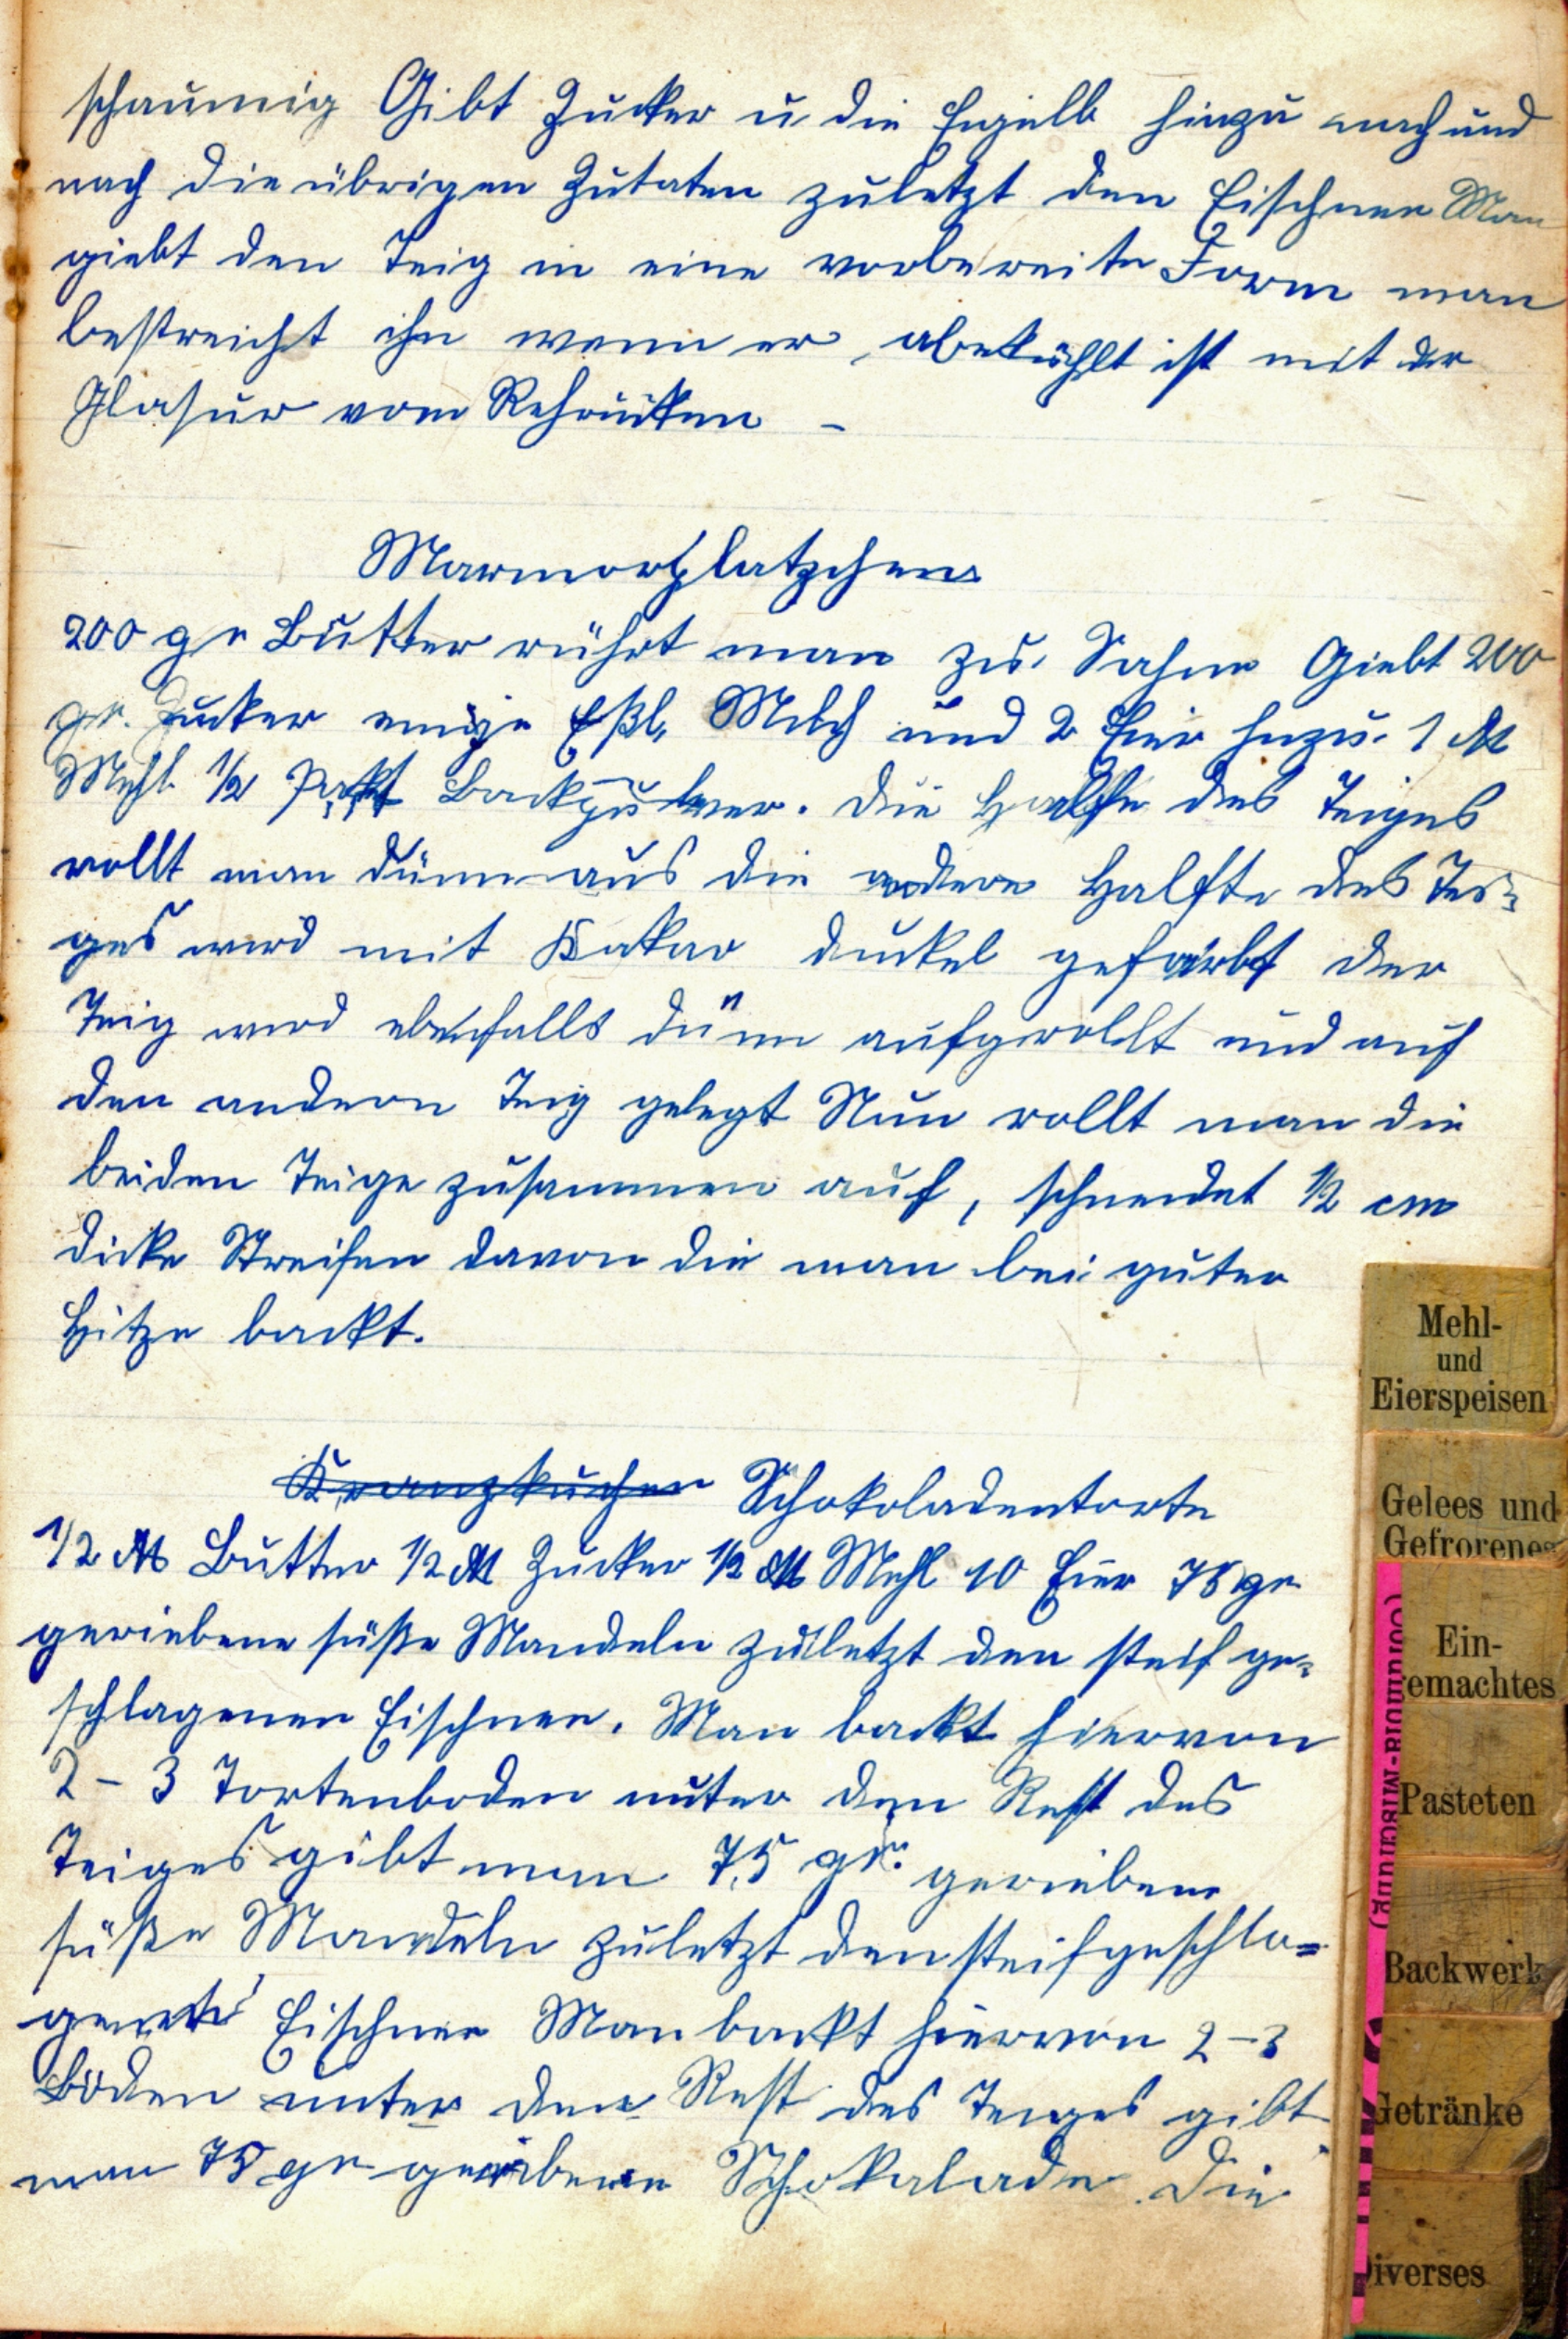 schaumig Gibt Zucker u die Eigelb hinzu nach und
nach die übrigen Zutaten zuletzt den Eischnee Man
giebt den Teig in eine vorbereite Form man
bestreicht ihn wenn er abekühlt ist mit der
Glasur vom Rehrücken –
Marmorplatzchen
200 gr Butter rührt man zu Sahne Giebt 200
gr. Zucker einige Eßl. Milch und 2 Eier hinzu. 1 ℔
Mehl ½ Pakt Backpulver. Die Halfte des Teiges
rollt man dünn aus die andere Halfte des Tei=
ges wird mit Kakao dunkel gefärbt der
Teig wird ebenfalls dünn aufgerollt und auf
den andern Teig gelegt Nun rollt man die
beiden Teige zusammen auf, schneidet ½ cm
dicke Streifen davon die man bei guter
Hitze backt.
Kranzkuchen Schokoladentorte
1/2 ℔ Butter 1/2 ℔ Zucker 1/2 ℔ Mehl 10 Eier 75 gr
geriebene süße Mandeln zuletzt den steif ge=
schlagenen Eischnee. Man backt hiervon
2 – 3 Tortenboden unter den Rest des
Teiges gibt man 75 gr. geriebene
süße Mandeln zuletzt den steifgeschla=
Eischnee Man backt hiervon 2–3
Böden unter den Rest des Teiges gibt
man 75 gr geriebene Schokalade. Die
Mehl-
und
Eierspeisen
Gelees und
Gefrorenes
Ein-
gemachtes
Pasteten
Backwerk
Getränke
Diverses